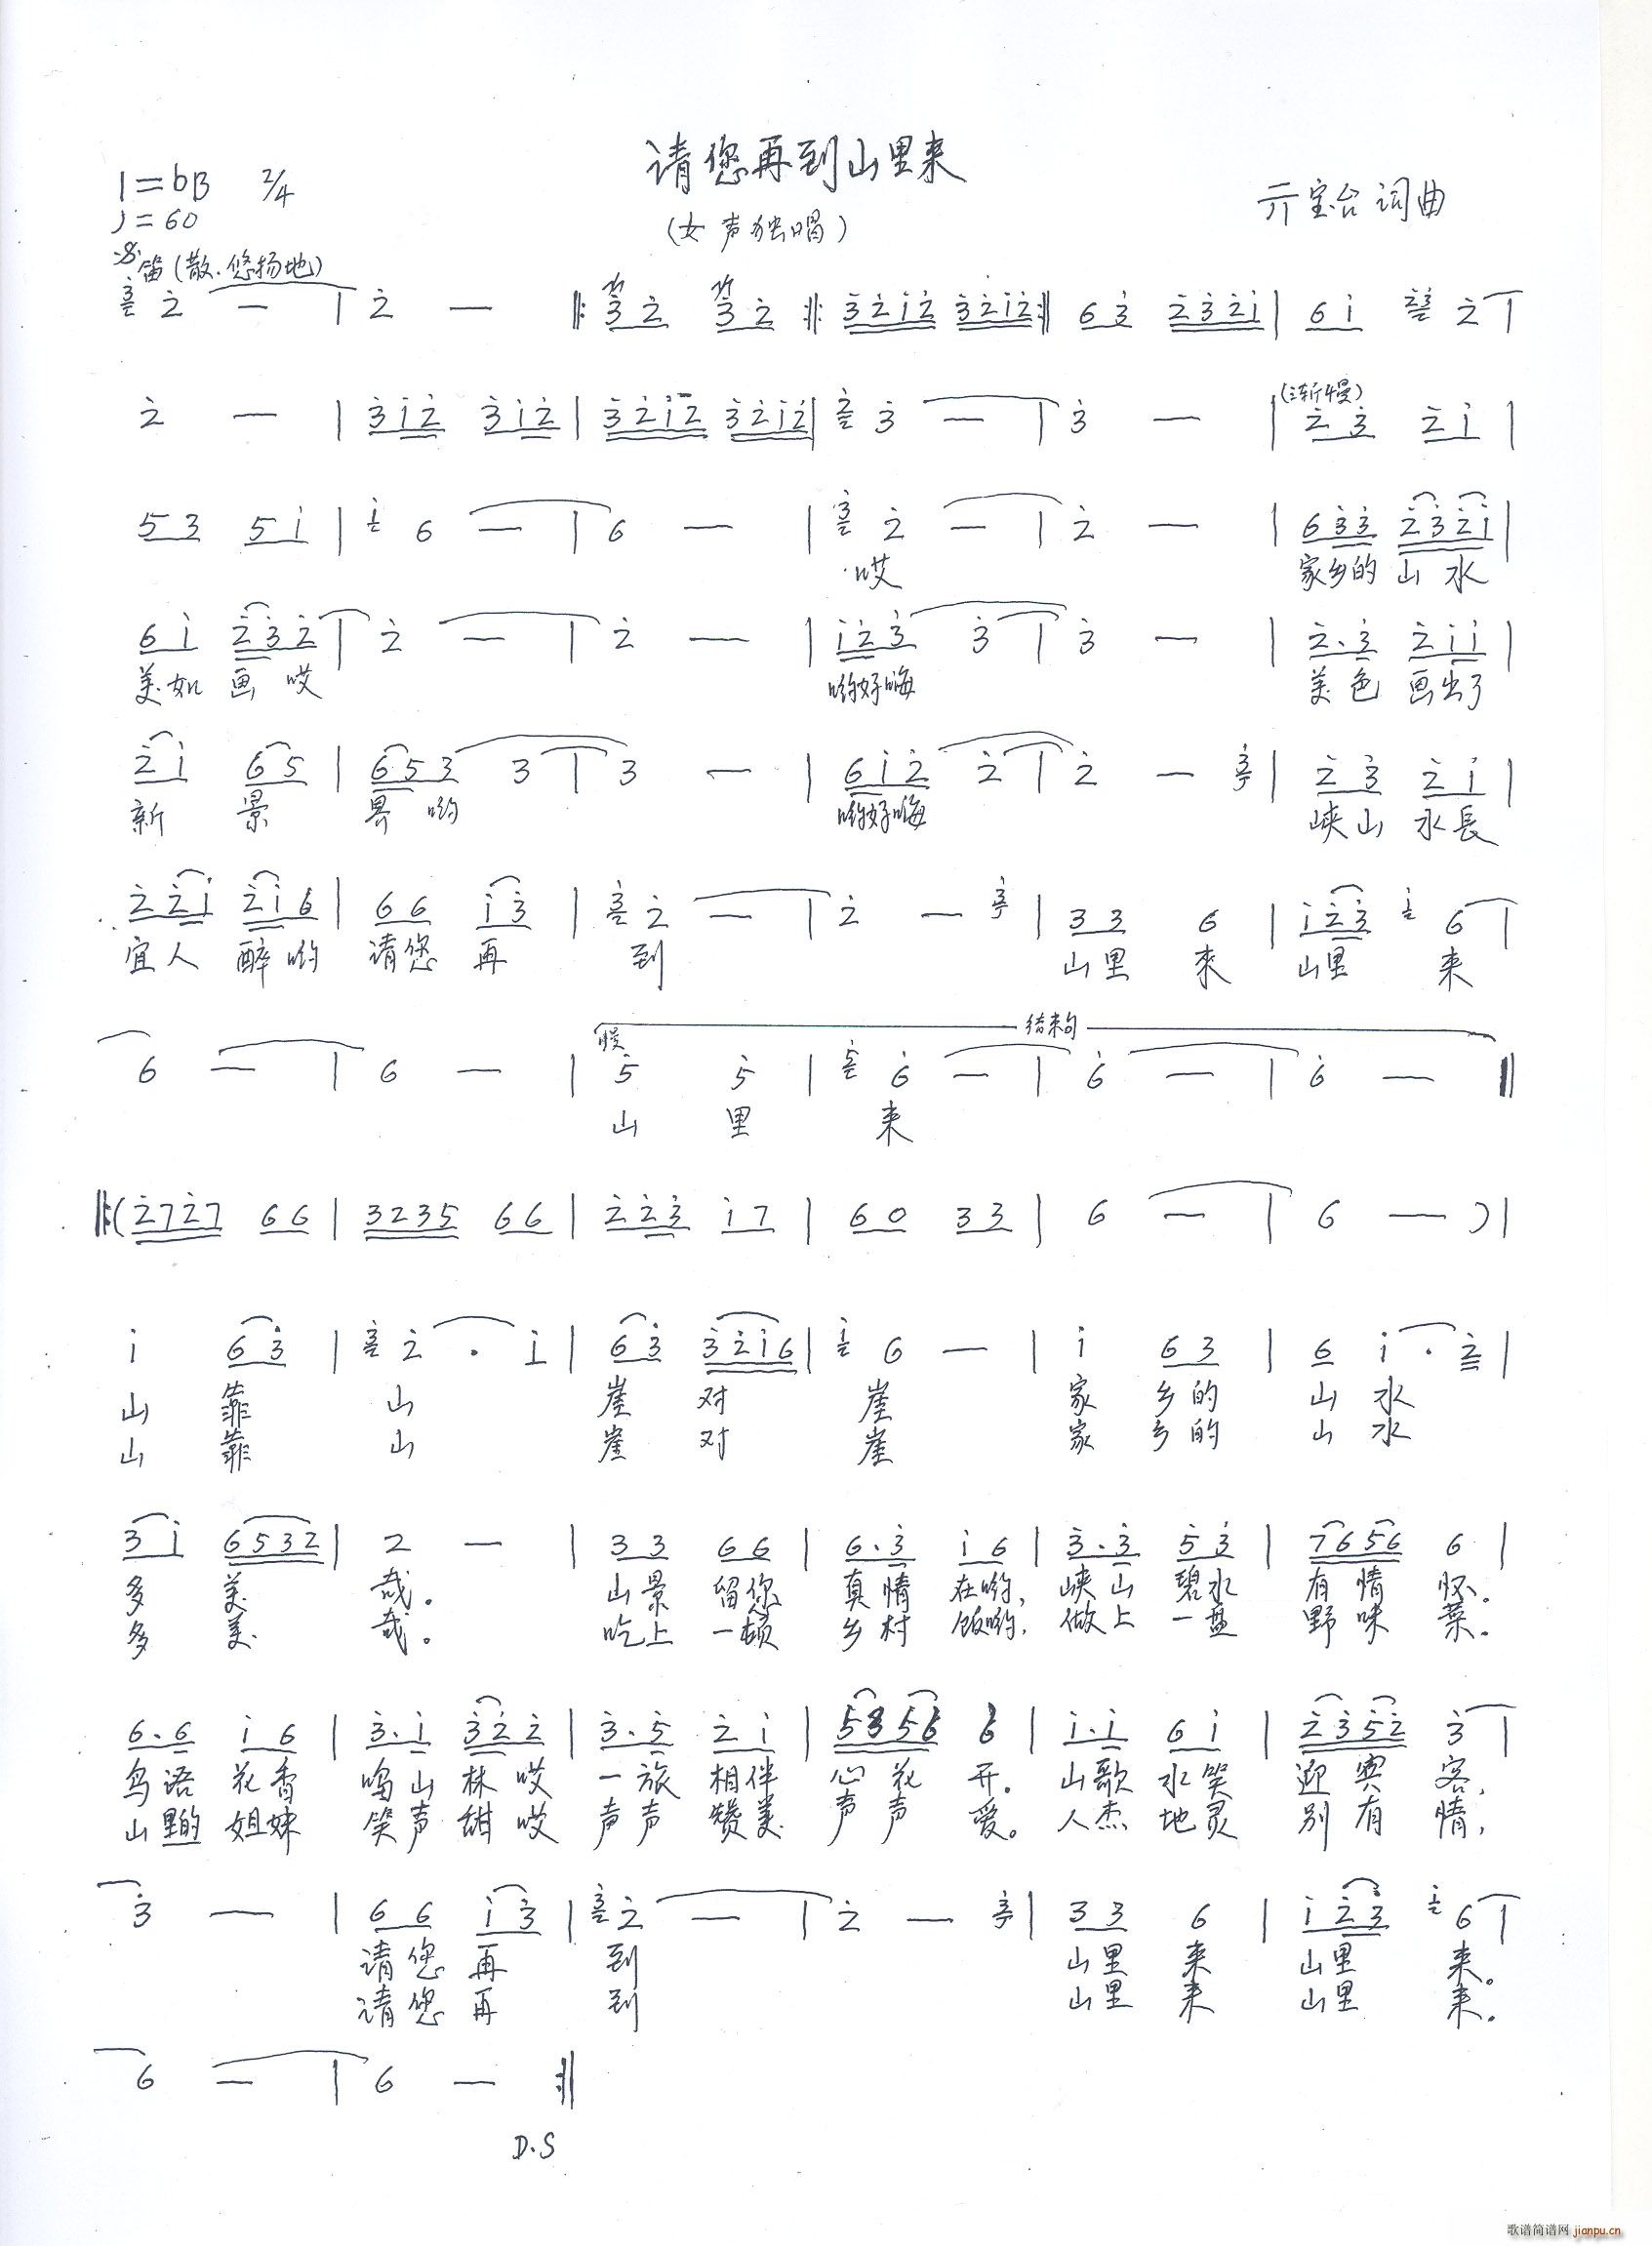 请您再到山里来
1=bB 2/4
亓宝台 词曲
♩=60
(女声独唱)
笛(散.悠扬地)
(渐慢)
哎 家乡的 山 水
美如 画 哎 哟好嗨 美 色 画出了
新 景 界 哟 哟好嗨 峡山 水長
宜人 醉哟 请您 再 到 山里 來 山里 来
慢 结束句
山 里 来
山 靠 山 崖 对 崖 家 乡的 山 水
山 靠 山 崖 对 崖 家 乡的 山 水
多 美 哉。 山景 留您 真情 在哟, 峡山 碧水 有 情 怀。
多 美 哉。 吃上 一顿 乡村 饭哟, 做上 一盘 野 味 菜。
鸟语 花香 鸣山 林哎 一旅 相伴 心 花 开。 山歌 水笑 迎 宾 客,
山里的 姐妹 笑声 甜哎 声声 赞美 声 声 爱。 人杰 地灵 别 有 情,
请您 再 到 山里 来 山里 来。
请您 再 到 山里 来 山里 来。
D.S
歌谱简谱网 jianpu.cn